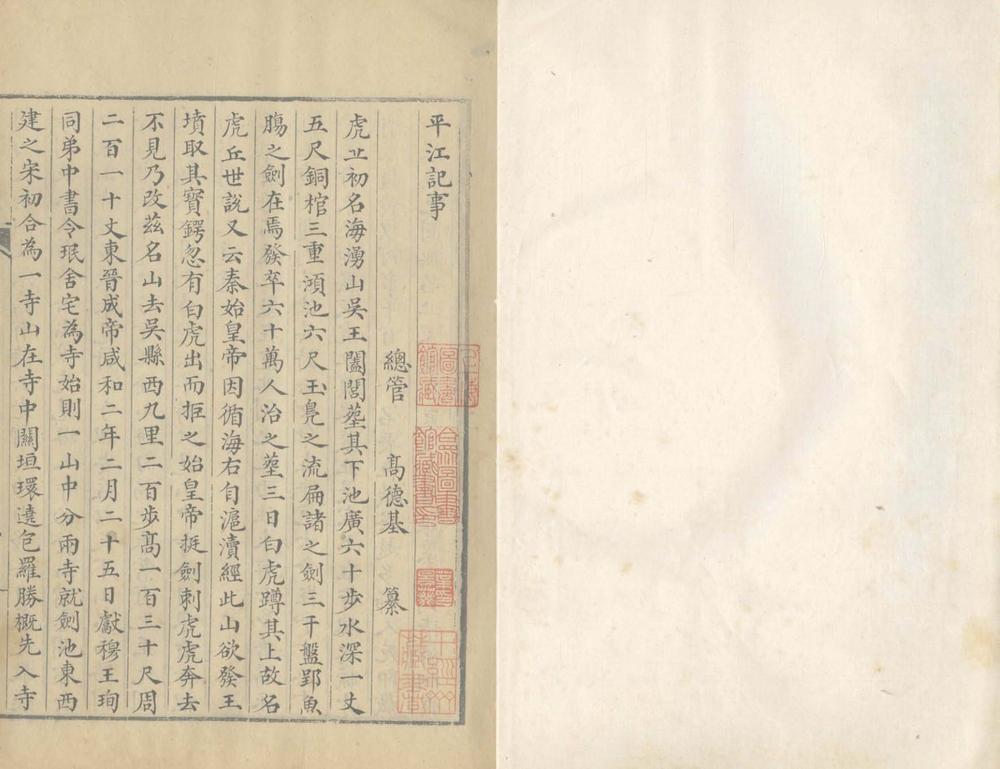 平江記事
總管 高德基 纂
虎丘初名海湧山吳王闔閭塟其下池廣六十步水深一丈
五尺銅棺三重澒池六尺玉鳧之流扁諸之劍三千盤郢魚
腸之劍在焉發卒六十萬人治之塟三日白虎蹲其上故名
虎丘世說又云秦始皇帝因循海右自滬瀆經此山欲發王
墳取其寶鍔忽有白虎出而拒之始皇帝挺劍刺虎虎奔去
不見乃改茲名山去吳縣西九里二百步高一百三十尺周
二百一十丈東晉成帝咸和二年二月二十五日獻穆王珣
同弟中書令珉舍宅為寺始則一山中分兩寺就劍池東西
建之宋初合為一寺山在寺中關垣環遶包羅勝概先入寺